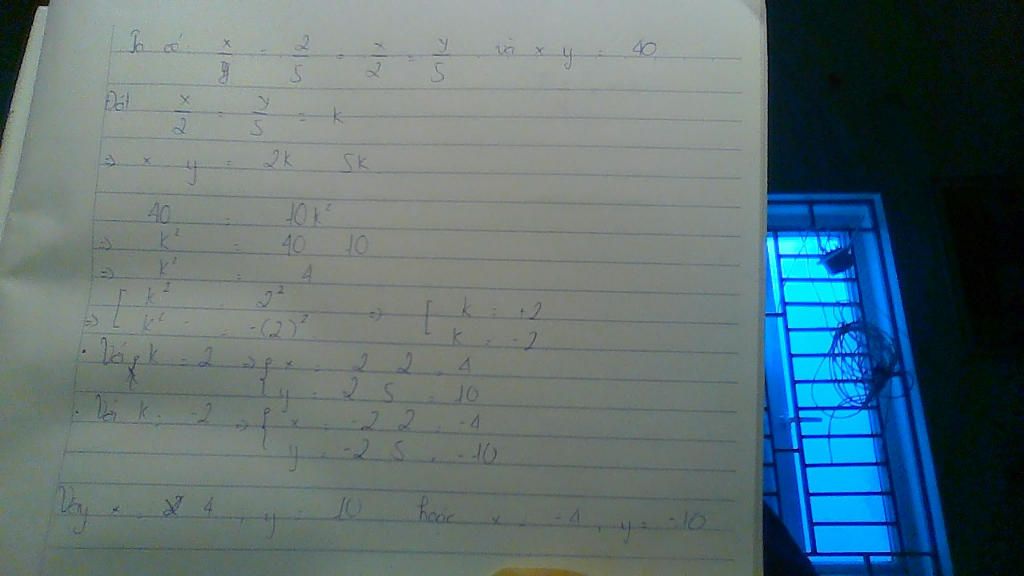 Ta có: x/y = 2/5 = x/2 = y/5 và x y = 40
Đặt x/2 = y/5 = k
=> x y = 2k 5k
40 = 10k²
=> k² = 40 10
=> k² = 4
=> [ k² = 2² => [ k = +2
k² = -(2)² k = -2
. Với k = 2 => { x = 2 2 = 4
y = 2 5 = 10
. Với k = -2 => { x = -2 2 = -4
y = -2 5 = -10
Vậy x = 4, y = 10 hoặc x = -4, y = -10